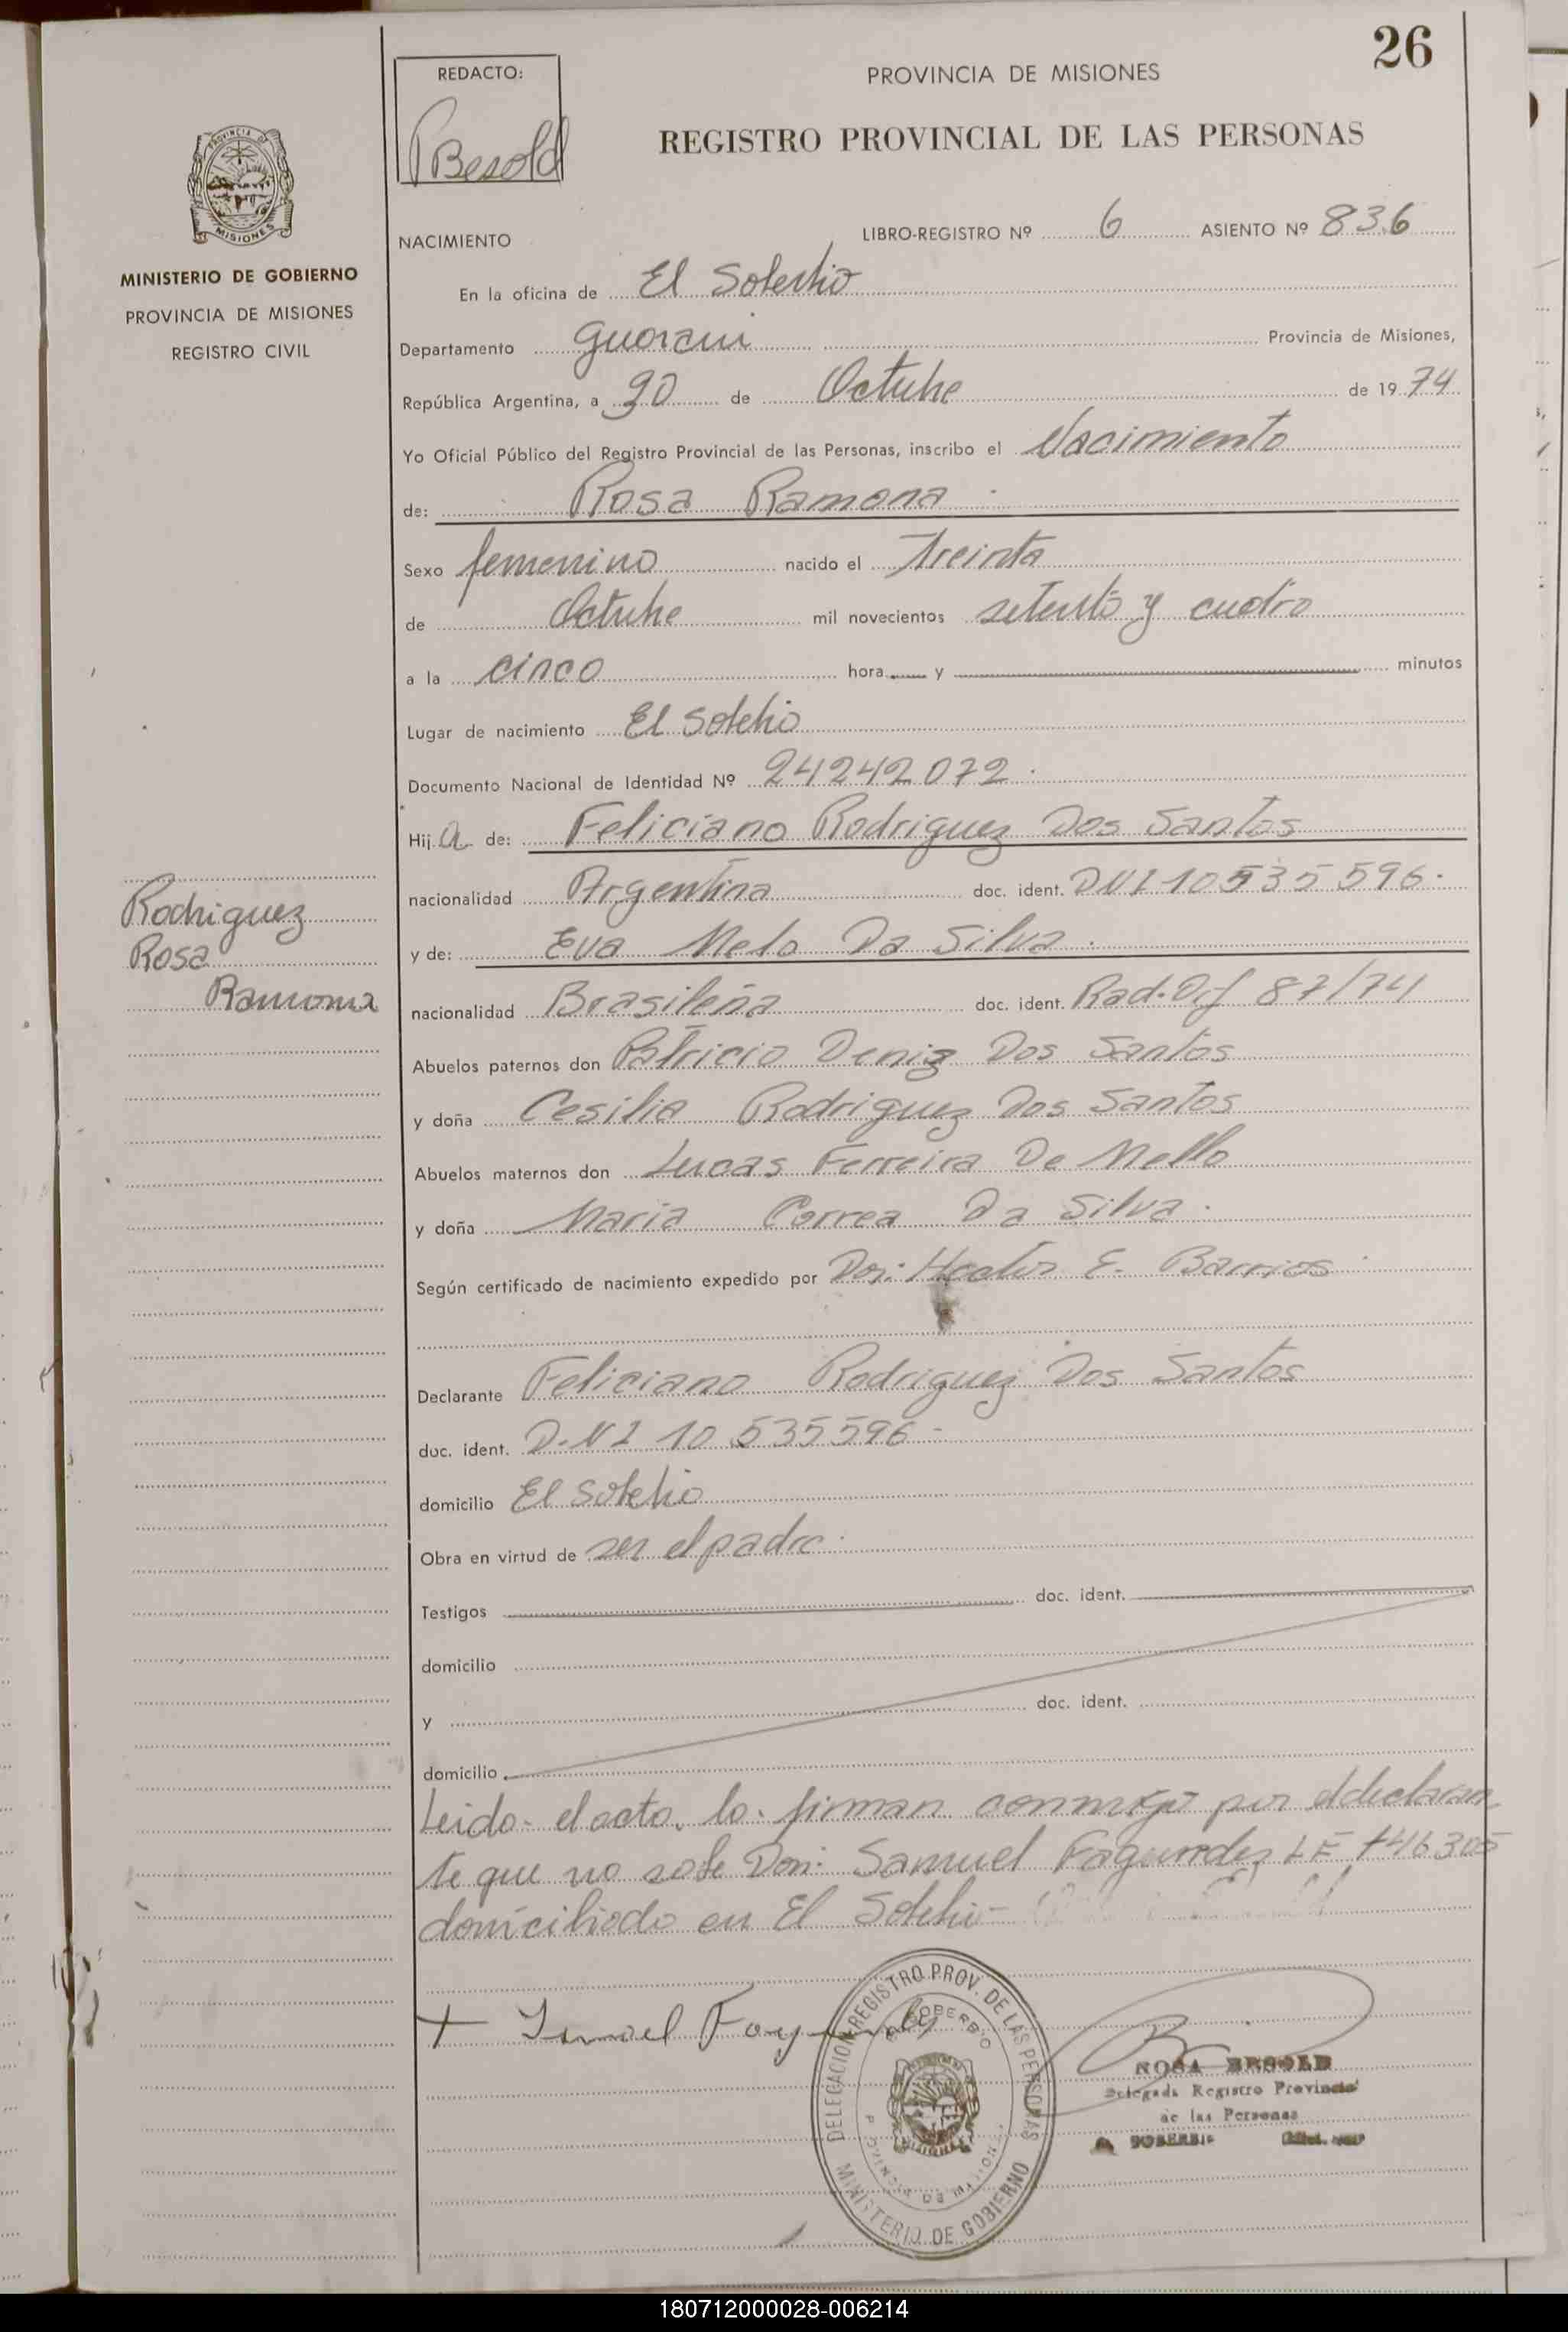 26
REDACTO:
PBesold
PROVINCIA DE MISIONES
REGISTRO PROVINCIAL DE LAS PERSONAS
PROVINCIA DE
MISIONES
MINISTERIO DE GOBIERNO
PROVINCIA DE MISIONES
REGISTRO CIVIL
NACIMIENTO
LIBRO-REGISTRO Nº 6 ASIENTO Nº 836
En la oficina de El Soberbio
Departamento Guarani Provincia de Misiones,
República Argentina, a 30 de Octubre de 1974
Yo Oficial Público del Registro Provincial de las Personas, inscribo el Nacimiento
de: Rosa Ramona
Sexo femenino nacido el Treinta
de Octubre mil novecientos setenta y cuatro
a la cinco hora y minutos
Lugar de nacimiento El Soberbio
Documento Nacional de Identidad Nº 24242072
Hija de: Feliciano Rodriguez Dos Santos
nacionalidad Argentina doc. ident. DNI 10535596
y de: Eva Melo Da Silva
Rodriguez
Rosa
Ramona
nacionalidad Brasileña doc. ident. Rad. Dif 87/74
Abuelos paternos don Patricio Deniz Dos Santos
y doña Cesilia Rodriguez Dos Santos
Abuelos maternos don Lucas Ferreira De Mello
y doña Maria Correa Da Silva.
Según certificado de nacimiento expedido por Don: Hector E. Barrios
Declarante Feliciano Rodriguez Dos Santos
doc. ident. D.N I 10 535596 -
domicilio El Soberbio
Obra en virtud de ser el padre.
Testigos doc. ident.
domicilio
y doc. ident.
domicilio
Leido el acto, lo firman conmigo por el declaran
te que no sabe Don: Samuel Fagundez LE 7416305
domiciliado en El Soberbio-
DELEGACION REGISTRO PROV. DE LAS PERSONAS
SOBERBIO
PROVINCIA DE MISIONES
MINISTERIO DE GOBIERNO
ROSA BESOLD
Delegada Registro Provincial
de las Personas
SOBERBIO
180712000028-006214